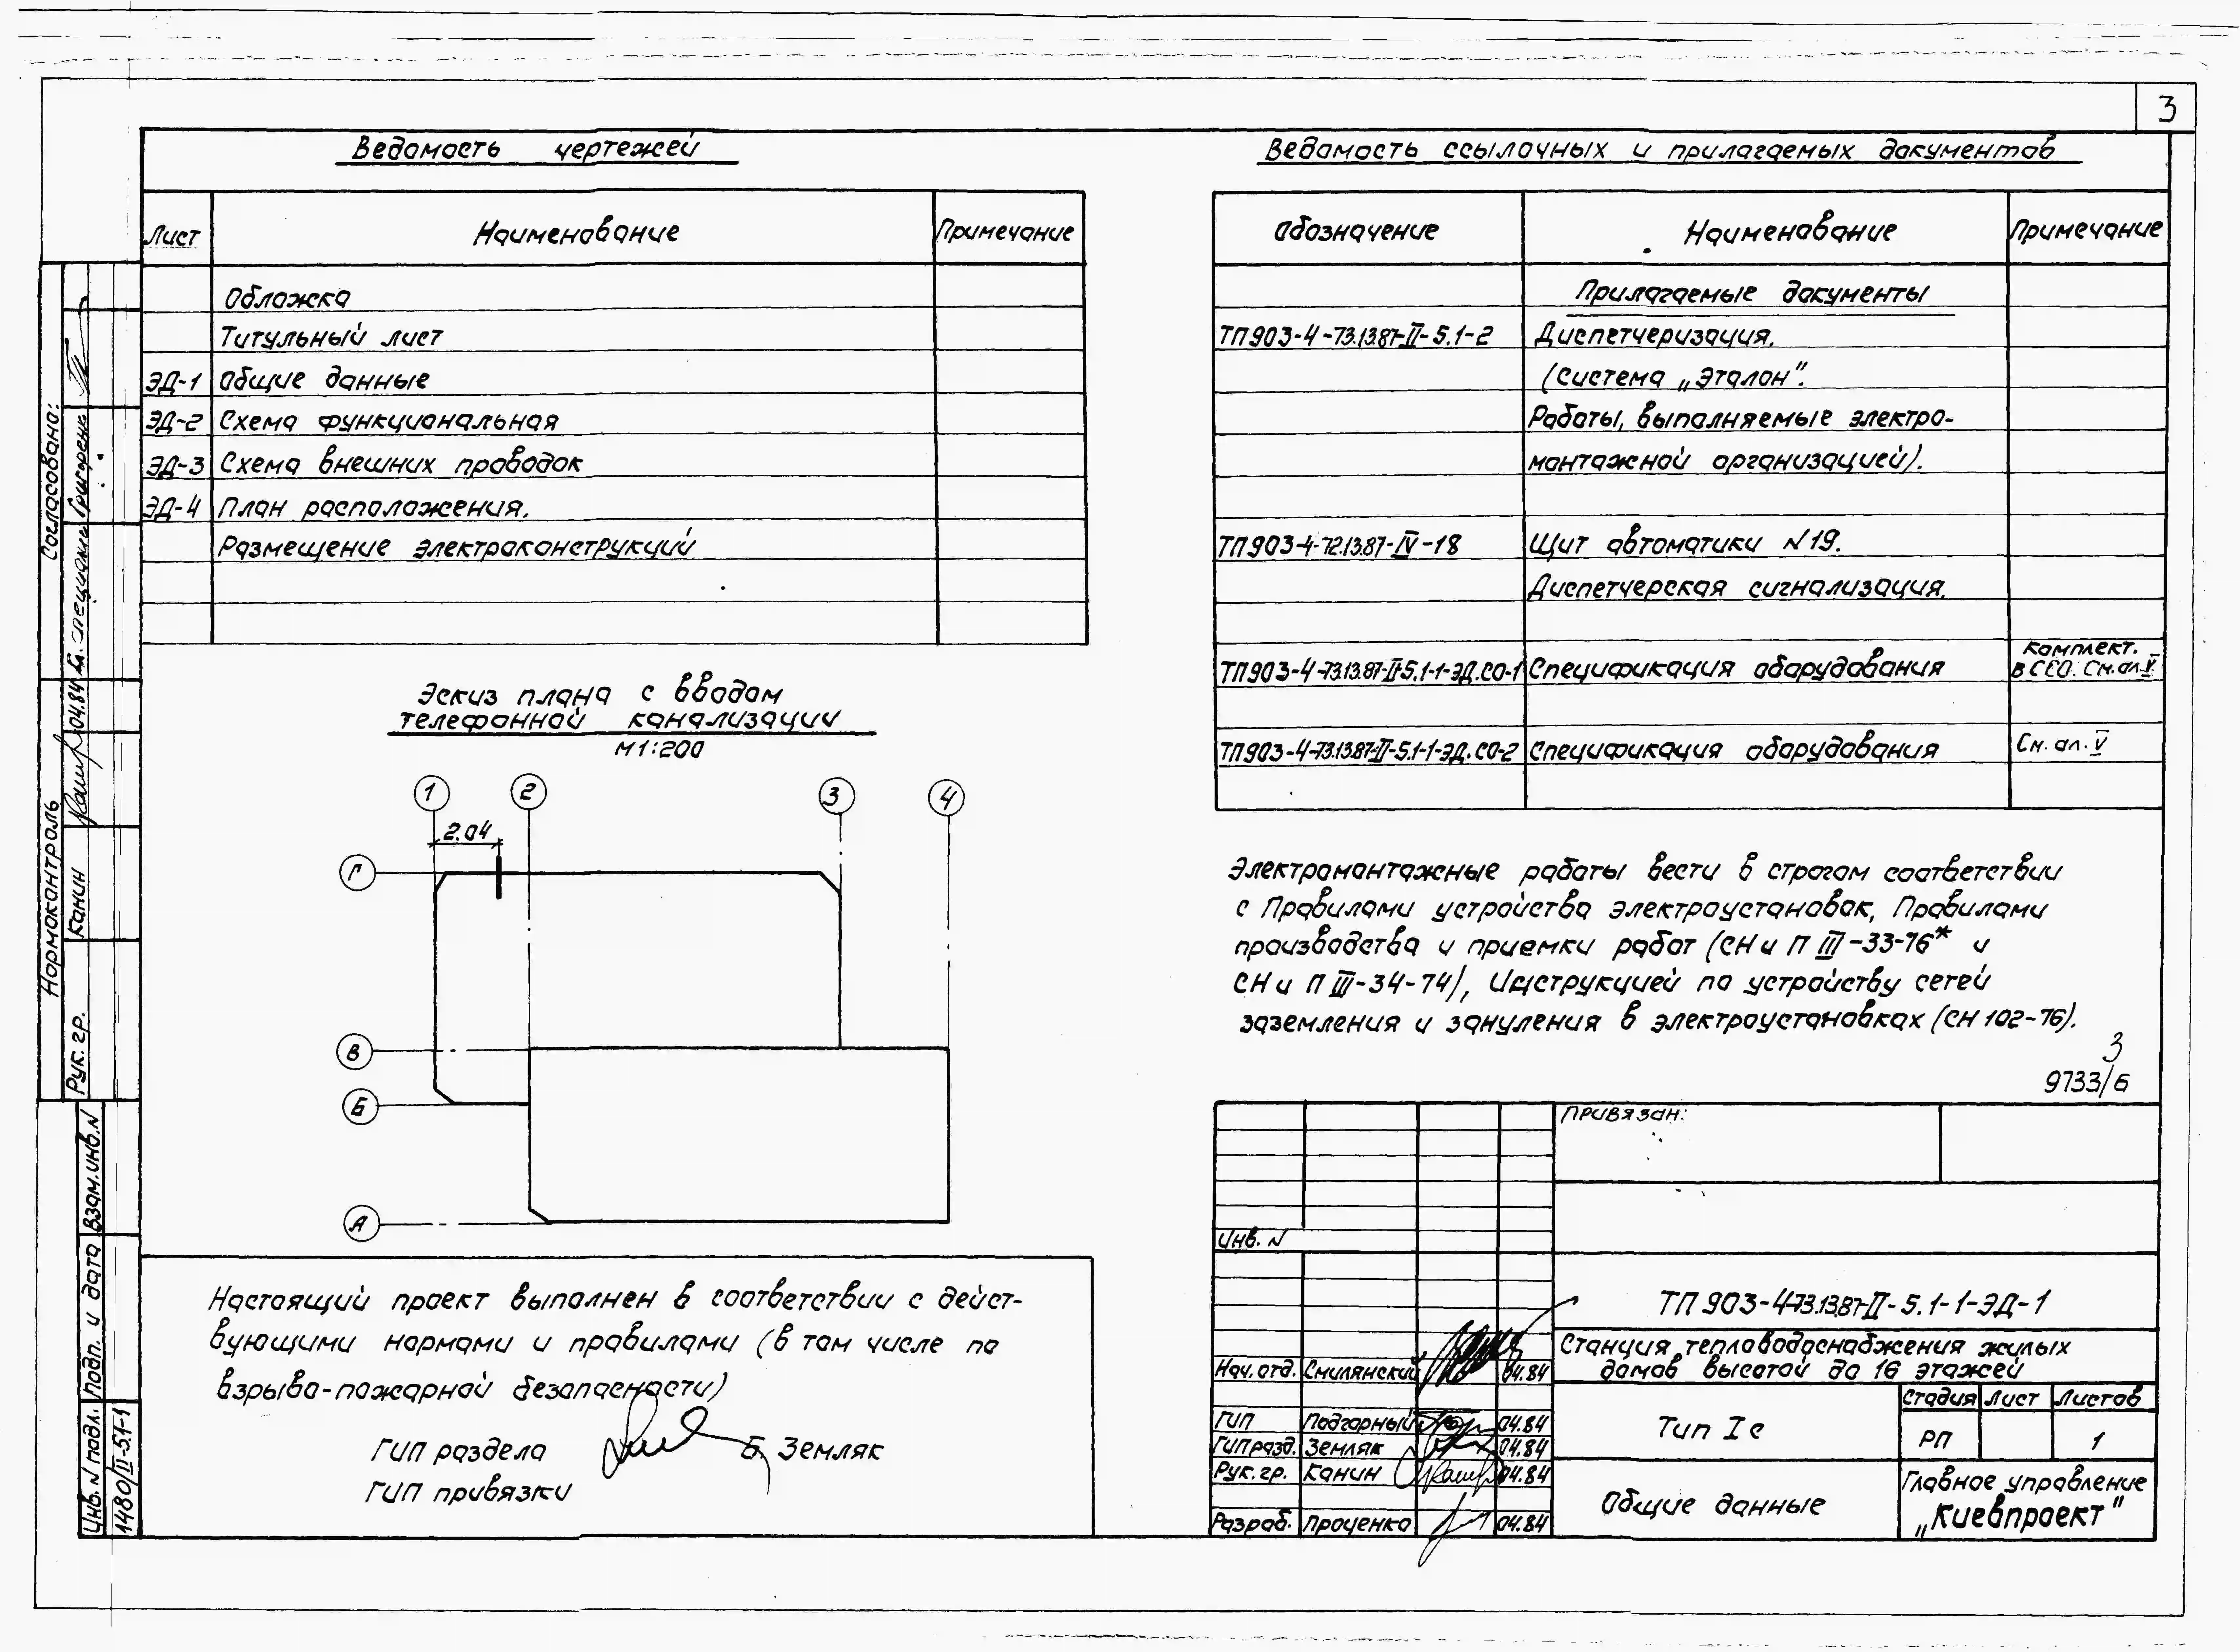 3
Ведомость чертежей
Лист Наименование Примечание
Обложка
Титульный лист
ЭД-1 Общие данные
ЭД-2 Схема функциональная
ЭД-3 Схема внешних проводок
ЭД-4 План расположения.
Размещение электроконструкций
Ведомость ссылочных и прилагаемых документов
Обозначение Наименование Примечание
Прилагаемые документы
ТП903-4-73.13.87-II-5.1-2 Диспетчеризация.
(Система „Эталон".
Работы, выполняемые электро-
монтажной организацией).
ТП903-4-72.13.87-IV-18 Щит автоматики N19.
Диспетчерская сигнализация.
ТП903-4-73.13.87-II-5.1-1-ЭД.СО-1 Спецификация оборудования Комплект.
в СЕО. См.ал.V.
ТП903-4-73.13.87-II-5.1-1-ЭД.СО-2 Спецификация оборудования См. ал. V
Эскиз плана с вводом
телефонной канализации
М 1:200
1 2 3 4
2.04
Г
В
Б
А
Электромонтажные работы вести в строгом соответствии
с Правилами устройства электроустановок, Правилами
производства и приемки работ (СНиП III-33-76* и
СНиП III-34-74), Инструкцией по устройству сетей
заземления и зануления в электроустановках (СН 102-76).
3
9733/6
Настоящий проект выполнен в соответствии с дейст-
вующими нормами и правилами (в том числе по
взрыво-пожарной безопасности)
ГИП раздела Б. Земляк
ГИП привязки
Привязан:
Инв. N
ТП903-4-73.13.87-II-5.1-1-ЭД-1
Станция тепловодоснабжения жилых
домов высотой до 16 этажей
Нач. отд. Смилянский 04.84
ГИП Подгорный 04.84
ГИП разд. Земляк 04.84
Рук. гр. Канин 04.84
Разраб. Проценко 04.84
Тип Iс
Стадия Лист Листов
РП 1
Общие данные
Главное управление
„Киевпроект"
Согласовано:
Гл. специалист Григоренко
Нормоконтроль
Рук. гр. Канин 04.84
Взам. инв. N
Подп. и дата
Инв. N подл.
1480/II-5.1-1